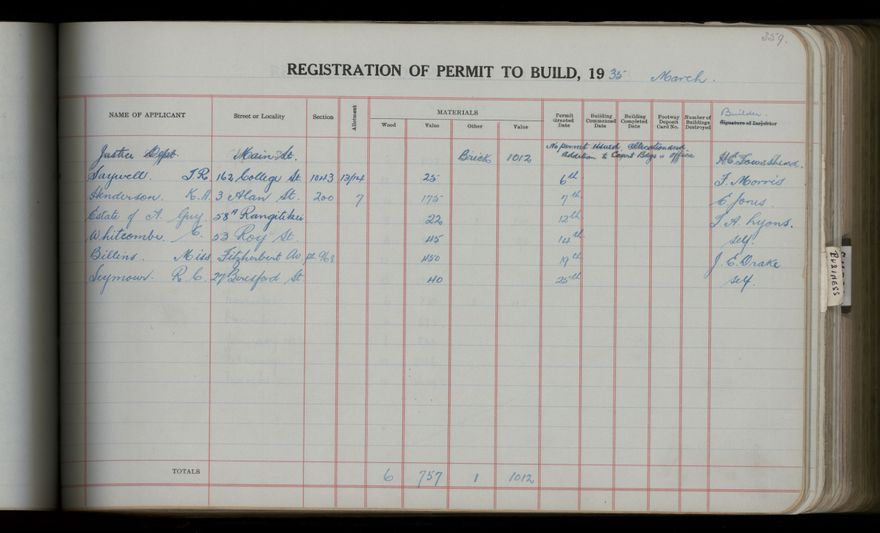 359.
REGISTRATION OF PERMIT TO BUILD, 19 35 March.
NAME OF APPLICANT Street or Locality Section Allotment MATERIALS Wood Value Other Value Permit Granted Date Building Commenced Date Building Completed Date Footway Deposit Card No. Number of Buildings Destroyed Builder. Signature of Inspector
Justice Dept. Main St. Brick 1012 No permit issued Alteration and Addition to Court Bldgs & Office H E Townshend.
Saywell. J R 162 College St. 1043 13/14 25 6th F. Morris
Henderson. K. A. 3 Alan St. 200 7 175 7th E Jones.
Estate of A. Guy. 58A Rangitikei 22 12th J. A. Lyons.
Whitcombe E. 53 Roy St. 45 14th self.
Billens. Miss Fitzherbert Av 450 19th J. E. Drake
Seymour. R. C. 27 Beresford St 40 25th self.
TOTALS 6 757 1 1012
BUSINESS